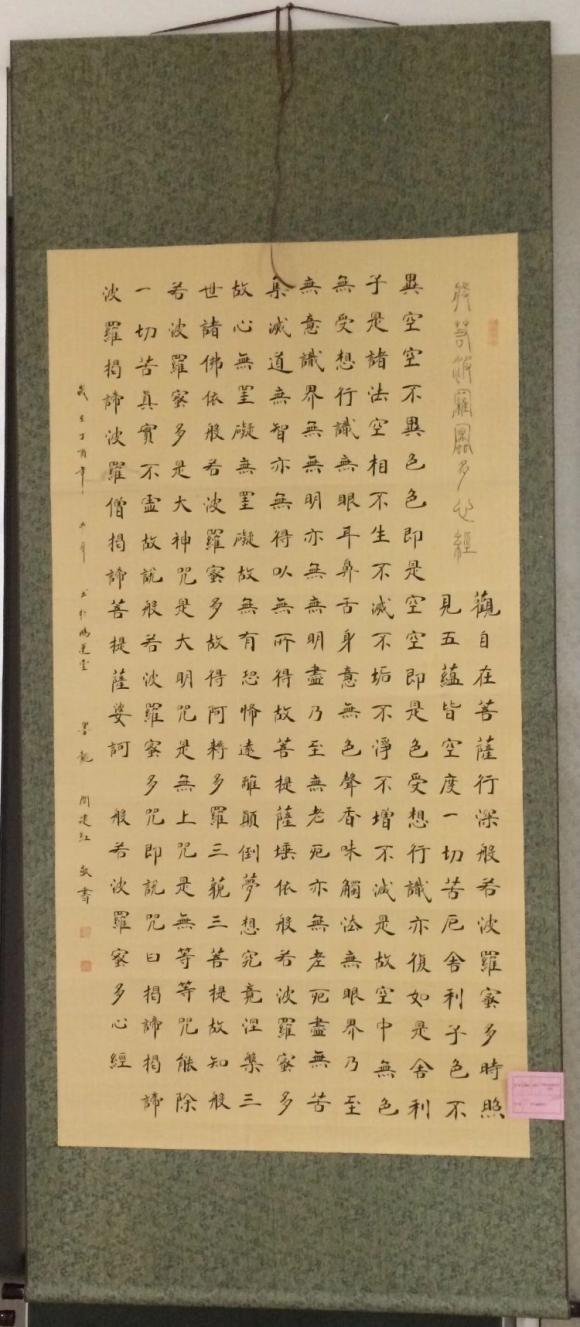 般若波羅蜜多心經
觀自在菩薩行深般若波羅蜜多時照
見五蘊皆空度一切苦厄舍利子色不
異空空不異色色即是空空即是色受想行識亦復如是舍利
子是諸法空相不生不滅不垢不淨不增不減是故空中無色
無受想行識無眼耳鼻舌身意無色聲香味觸法無眼界乃至
無意識界無無明亦無無明盡乃至無老死亦無老死盡無苦
集滅道無智亦無得以無所得故菩提薩埵依般若波羅蜜多
故心無罣礙無罣礙故無有恐怖遠離顛倒夢想究竟涅槃三
世諸佛依般若波羅蜜多故得阿耨多羅三藐三菩提故知般
若波羅蜜多是大神咒是大明咒是無上咒是無等等咒能除
一切苦真實不虛故說般若波羅蜜多咒即說咒曰揭諦揭諦
波羅揭諦波羅僧揭諦菩提薩婆訶 般若波羅蜜多心經
歲在丁酉年 月 書於 堂 墨龍 周建紅 敬書